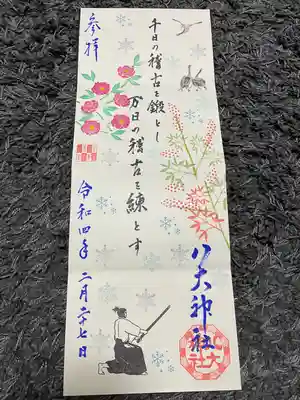 奉拝
千日の稽古を鍛とし
万日の稽古を練とす
八大神社
令和四年 二月二十七日
八大
神社